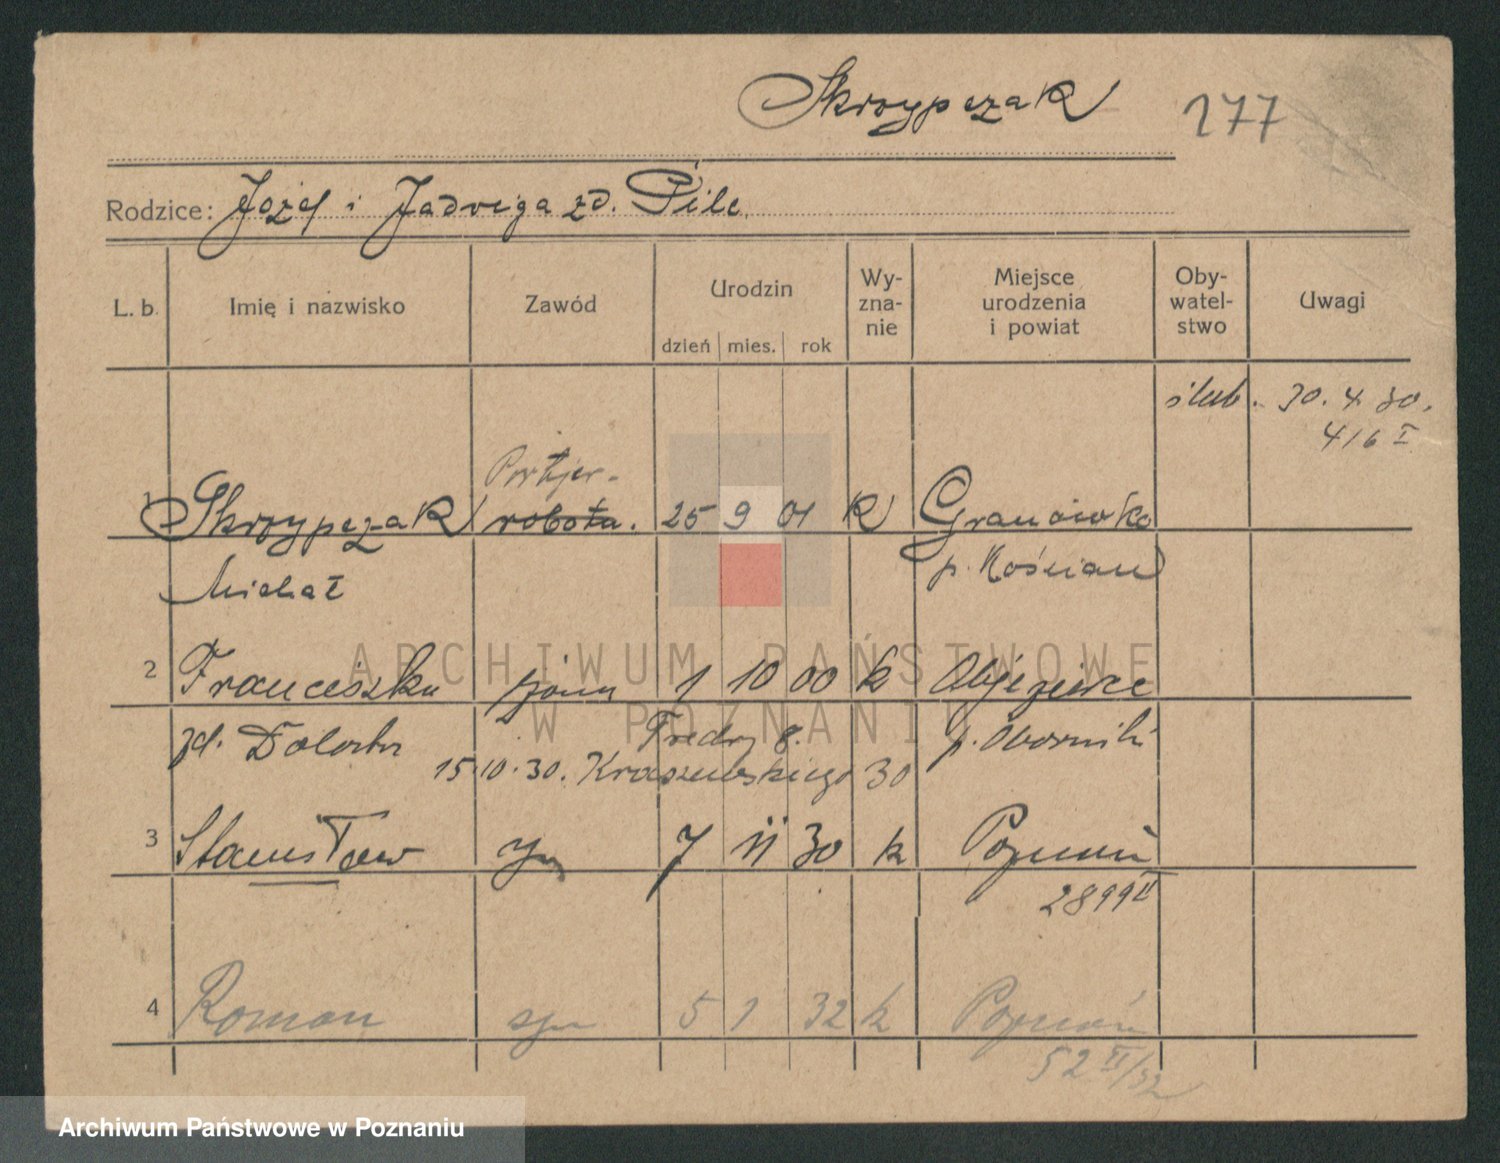 Skrzypczak 177
Rodzice: Józef i Jadwiga zd. Pilc
L. b. Imię i nazwisko Zawód Urodzin Wy-zna-nie Miejsce urodzenia i powiat Oby-watel-stwo Uwagi
dzień mies. rok
ślub. 30. 4. 30.
416 I
Portjer.
1 Skrzypczak robotn. 25 9 01 k Granówko
Michał p. Kościan
ARCHIWUM PAŃSTWOWE
W POZNANIU
2 Franciszka żona 1 10 00 k Objezierze
zd. Fredry 8. p. Oborniki
15.10.30. Kraszewskiego 30
3 Stanisław syn 7 11 30 k Poznań
2899 II
4 Roman syn 5 1 32 k Poznań
52 II/32
Archiwum Państwowe w Poznaniu